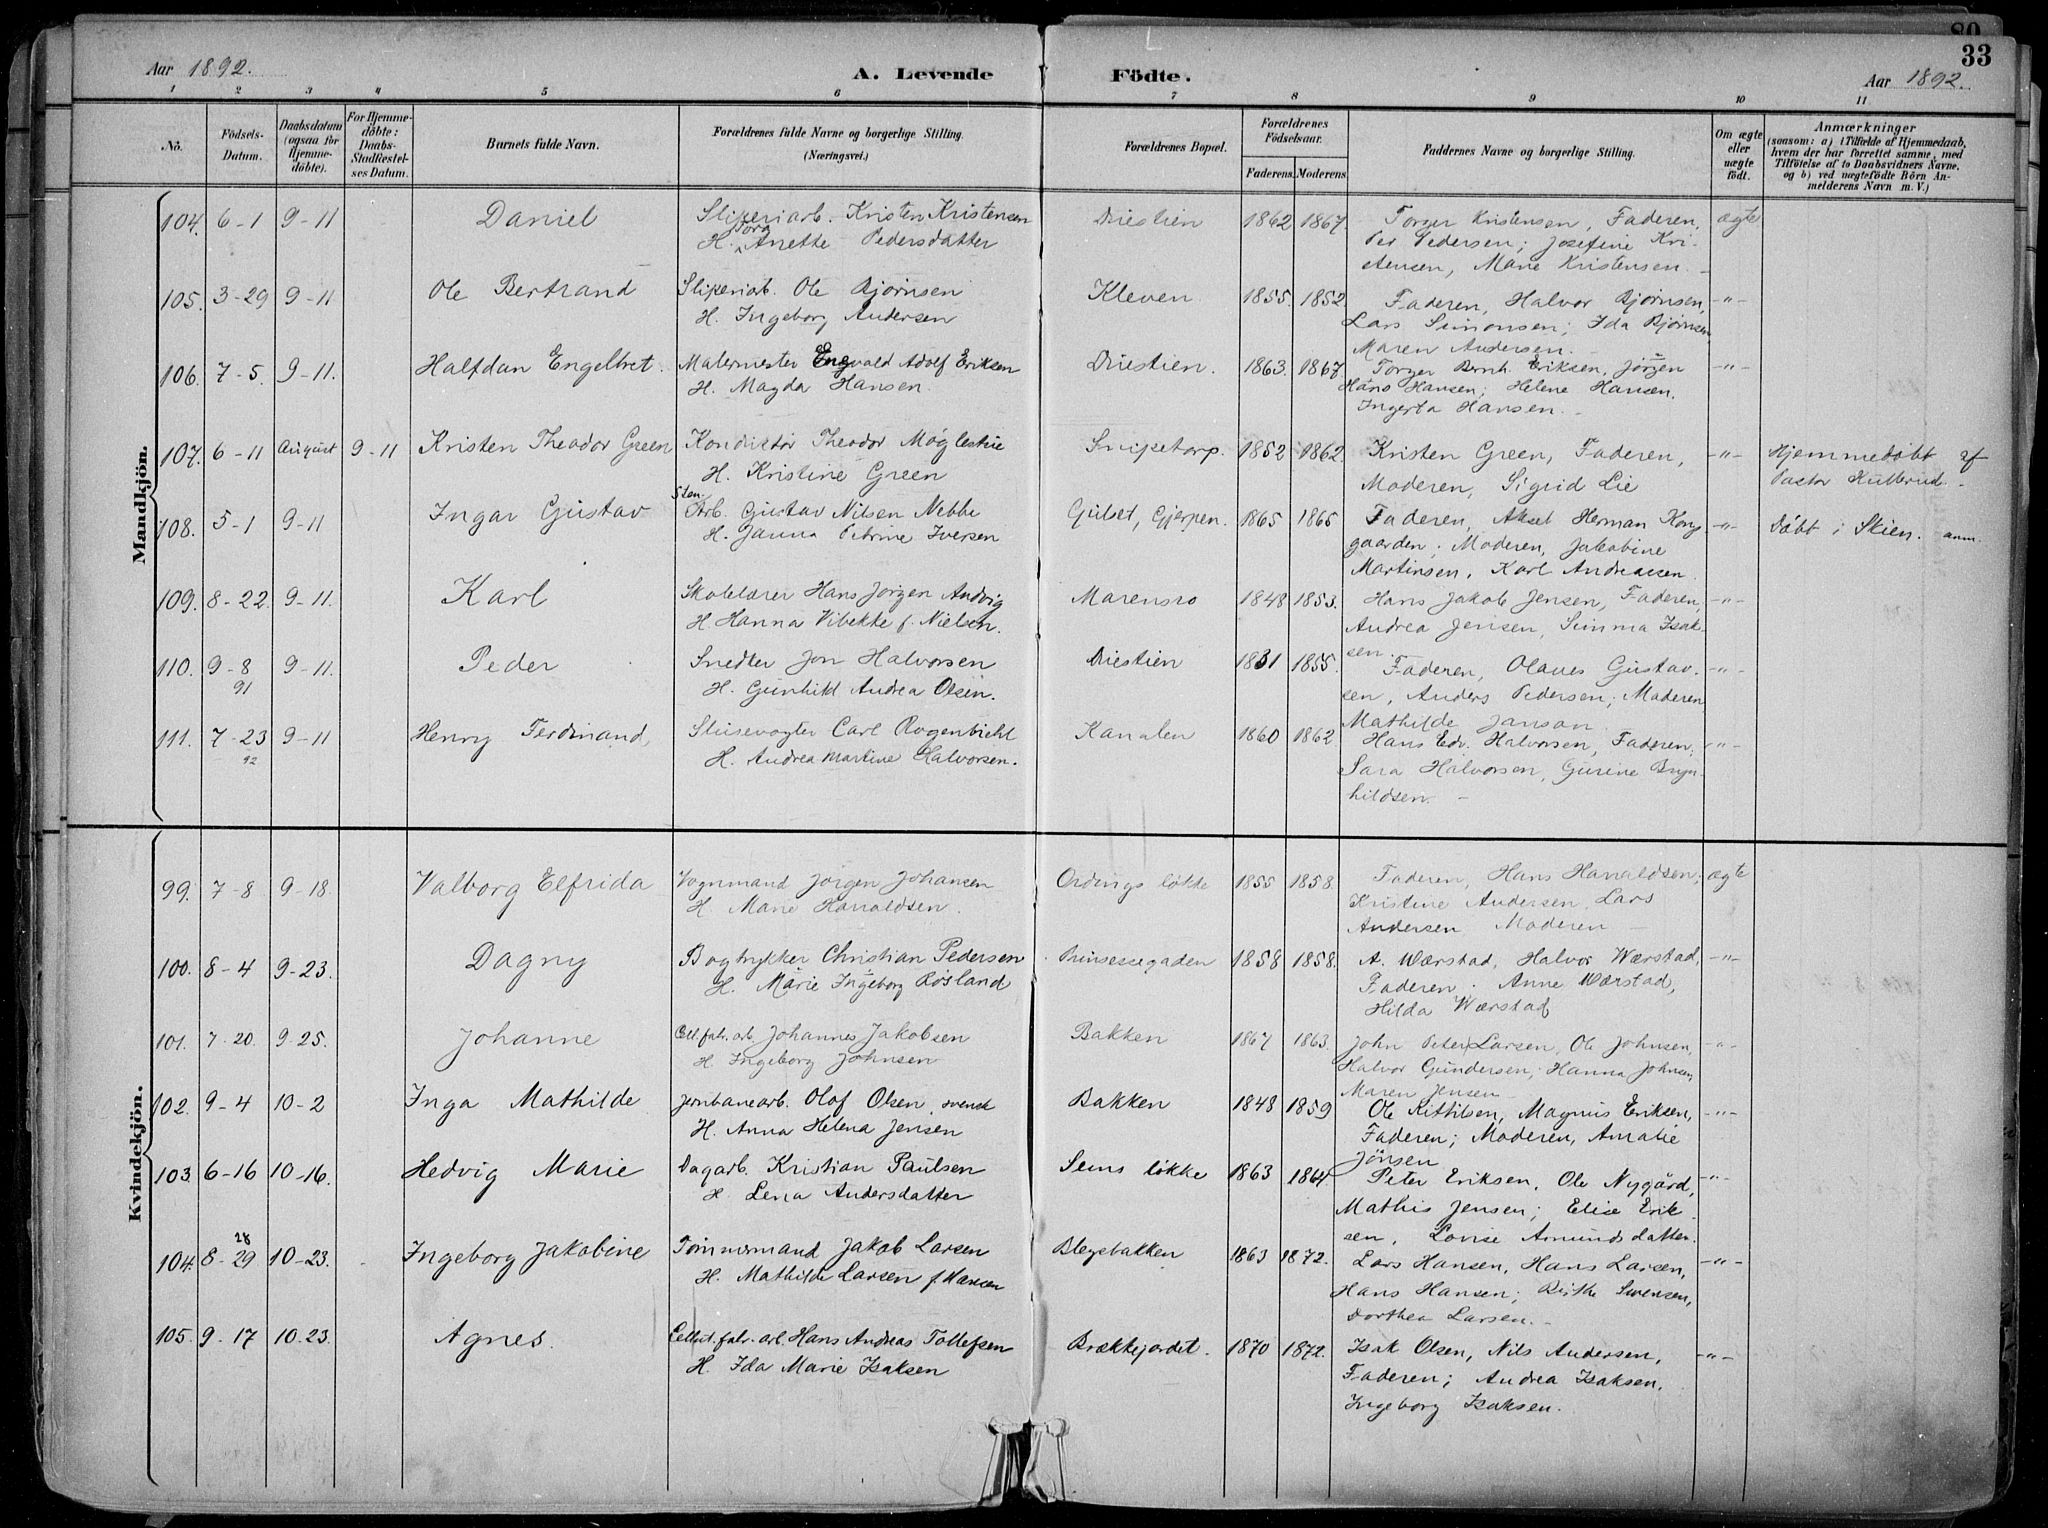 80
33
Aar 1892.
A. Levende Födte.
Aar 1892.
1 2 3 4 5 6 7 8 9 10 11
No.
Födsels-Datum.
Daabsdatum (ogsaa for Hjemmedöbte).
For Hjemmedöbte: Daabs-Stadfæstelses Datum.
Barnets fulde Navn.
Forældrenes fulde Navne og borgerlige Stilling. (Næringsvei.)
Forældrenes Bopæl.
Forældrenes Födselsaar.
Faderens. Moderens.
Faddernes Navne og borgerlige Stilling.
Om ægte eller uægte födt.
Anmærkninger
(saasom: a) i Tilfælde af Hjemmedaab, hvem der har forrettet samme, med Tilföielse af to Daabsvidners Navne, og b) ved uægtefödte Börn Anmelderens Navn m. V.)
Mandkjön.
104. 6-1 9-11 Daniel Sliperiarb. Kristen Kristensen Driestien 1862 1867. Torger Kristensen, Faderen, ægte
H. Tora Anette Pedersdatter Per Pedersen; Josefine Kri-
stensen, Marie Kristensen.
105. 3-29 9-11 Ole Bertrand Sliperiarb. Ole Bjørnsen Kleven. 1855. 1852. Faderen, Halvor Bjørnsen, -"-
H. Ingeborg Andersen Lars Simonsen; Ida Bjørnsen
Maren Andersen.
106. 7-5. 9-11. Halfdan Engelbret. Malermester Engvald Adolf Eriksen Driestien. 1863. 1867. Torger Bernh. Eriksen, Jørgen -"-
H. Magda Hansen. Hans Hansen; Helene Hansen.
Ingerta Hansen.
107. 6-11 August 9-11 Kristen Theodor Green Konduktør Theodor Møglestue Snipetorp. 1852 1862. Kristen Green, Faderen, -"- Hjemmedøbt af
H. Kristine Green Moderen, Sigrid Lie Pastor
108. 5-1 9-11 Ingar Gustav Sten Arb. Gustav Nilsen Nebbe Gulset, Gjerpen. 1865 1865 Faderen, Aksel Herman Kon- -"- Døbt i Skien. anm.
H. Janna Petrine Iversen gaarden; Moderen, Jakobine
Martinsen, Karl Andreassen.
109. 8-22. 9-11. Karl Skolelærer Hans Jørgen Andvig Marensro 1848 1853. Hans Jakob Jensen, Faderen, -"-
H. Hanna Vibekke f. Nielsen. Andrea Jensen, Simma Isak-
sen.
110. 9-8 91 9-11. Peder Snedker Jon Halvorsen Driestien 1831 1855. Faderen, Olaves Gustav- -"-
H. Gunhild Andrea Olsen. sen, Anders Pedersen; Moderen
Mathilde Janson
111. 7-23 92 9-11 Henry Ferdinand, Slusevogter Carl Rogenbicht Kanalen 1860 1862 Hans Edv. Halvorsen, Faderen, -"-
H. Andrea Martine Halvorsen. Sara Halvorsen, Gurine Bryn-
hildsen.
Kvindekjön.
99. 7-8 9-18. Valborg Elfrida Vognmand Jørgen Johansen Ordings løkke 1855 1858. Faderen, Hans Haraldsen; ægte
H. Marie Haraldsen. Kristine Andersen, Lars
Andersen Moderen
100. 8-4 9-23. Dagny Bogtrykker Christian Pedersen Prinsessegaden 1858 1858. A. Wærstad, Halvor Wærstad, -"-
H. Marie Ingeborg Røsland Faderen. Anne Wærstad,
Hilda Wærstad
101. 7-20. 9-25. Johanne Cell.fabr.arb. Johannes Jakobsen Bakken 1867 1863. John Peter Larsen, Ole Johnsen, -"-
H. Ingeborg Johnsen Halvor Gundersen; Hanna Johnsen,
Maren Jensen
102. 9-4 10-2 Inga Mathilde Jernbanearb. Olof Olsen, svensk Bakken 1848 1859 Ole Kittilsen, Magnus Eriksen, -"-
H. Anna Helena Jensen Faderen; Moderen, Amalie
Jönsen
103. 6-16 10-16. Hedvig Marie Dagarb. Kristian Paulsen Sems løkke 1863 1864. Peter Eriksen, Ole Nygård, -"-
H. Lena Andersdatter Mathis Jensen; Elise Erik-
sen, Lovise Amundsdatter.
104. 8-29 28 10-23. Ingeborg Jakobine Tømmermand Jakob Larsen Blegebakken 1863 1872. Lars Hansen, Hans Larsen, -"-
H. Mathilde Larsen f. Hansen Hans Hansen; Birthe Svensen,
Dorthea Larsen.
105. 9-17 10.23. Agnes. Cellul.fabr.arb. Hans Andreas Tollefsen Brækkejordet. 1870 1872. Isak Olsen, Nils Andersen, -"-
H. Ida Marie Isaksen Faderen; Andrea Isaksen,
Ingeborg Isaksen.